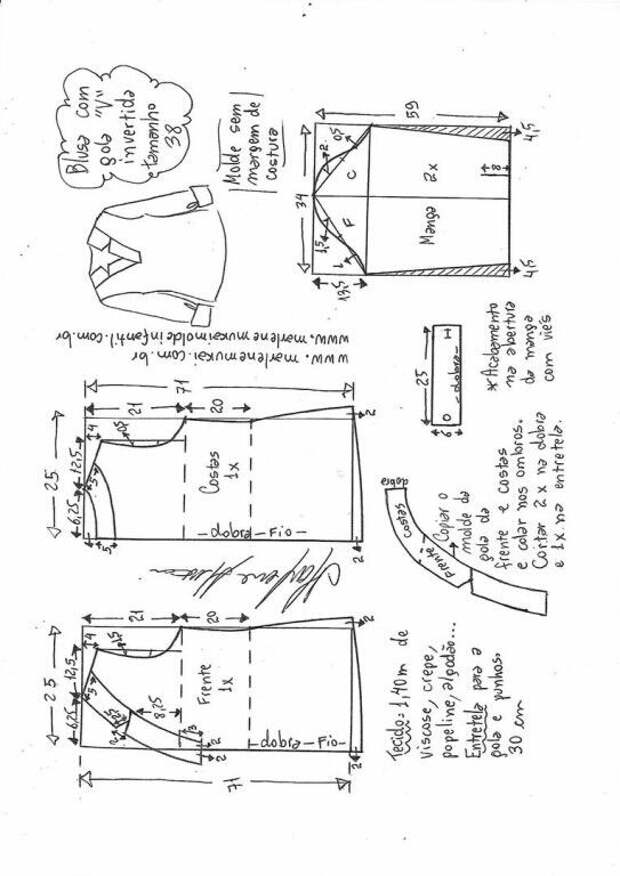 Blusa com
gola "V"
invertida
tamanho
38
Molde sem
margem de
costura
www.marlenemukai.com.br
www.marlenemukaimoldeinfantil.com.br
25
6,25
12,5
4
5
5
1,5
21
20
71
2,5
2
8,25
3
2
2
Frente
1x
dobra-Fio-
2
2
25
6,25
12,5
4
5
5
0,5
21
20
71
Costas
1x
dobra-Fio-
2
2
34
59
13,5
1,5
1
2
0,5
F
C
Manga
2x
8
4,5
4,5
25
6
O -dobra- H
*Acabamento
na abertura
da manga
com viés
dobra
costas
frente
Copiar o
molde da
gola da
frente e costas
e colar nos ombros.
Cortar 2x na dobra
e 1x na entretela.
Tecido=1,40m de
viscose, crepe,
popeline, algodão...
Entretela para a
gola e punhos.
30 cm